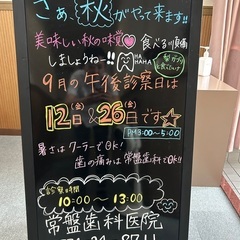 さぁ、秋がやって来ます!!
美味しい秋の味覚
食べる順備
しましょうねー!!
HA
HAHA
9月の午後診察日は
12日(金)&26日(金)です☆
PM3:00〜5:00
暑さはクーラーでOK!
歯の痛みは常盤歯科でOK!!
診察時間
10:00〜13:00
常盤歯科医院